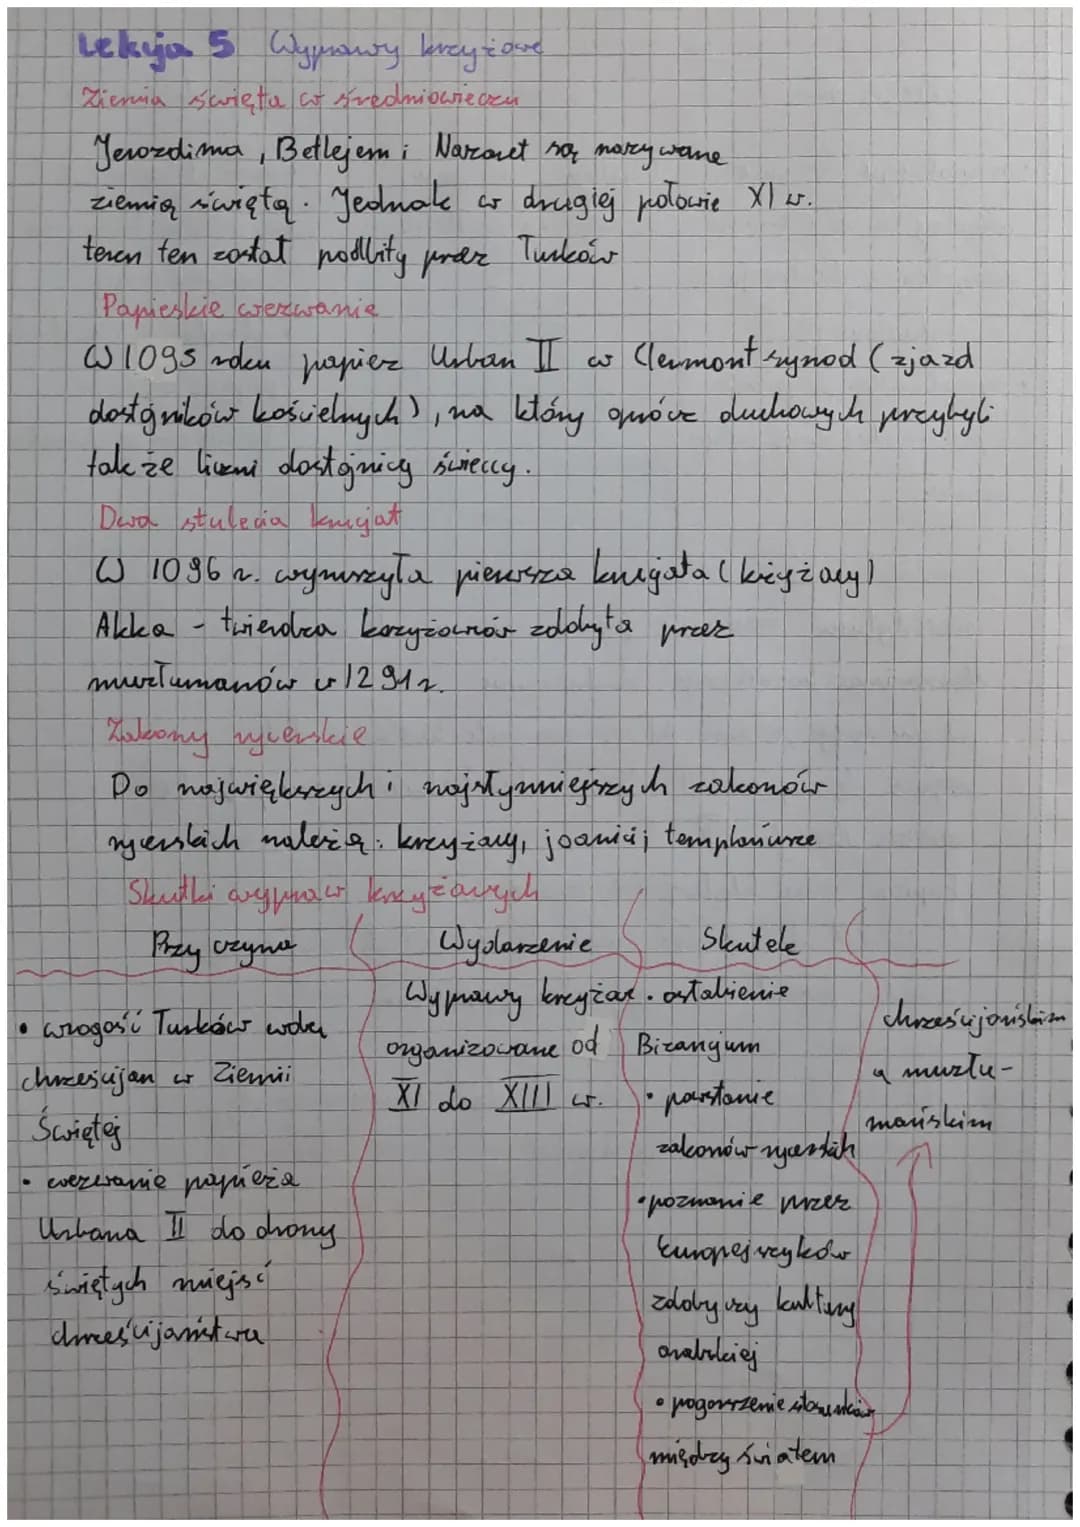 Lekcja 5 Wyprawy krzyżowe
Ziemia święta w średniowieczu
Jerozolima, Betlejem i Nazaret są nazywane
ziemią świętą. Jednak w drugiej połowie XI w.
teren ten został podbity przez Turków
Papieskie wezwanie
W 1095 roku papież Urban II w Clermont synod (zjazd
dostojników kościelnych), na który oprócz duchowych przybyli
także liczni dostojnicy świeccy.
Dwa stulecia krucjat
W 1096 r. wyruszyła pierwsza krucjata (krzyżacy)
Akka - twierdza krzyżowców zdobyta przez
muzłumanów w 1291r.
Zakony rycerskie
Do największych i najsłynniejszych zakonów
rycerskich należą: krzyżacy, joanici, templariusze
Skutki wypraw krzyżowych
Przyczyna
• wrogość Turków wobec
chrześcijan w Ziemii
Świętej
• wezwanie papieża
Urbana II do obrony
świętych miejsc
chrześcijaństwa
Wydarzenie
Wyprawy krzyżow.
organizowane od
XI do XIII w.
Skutek
• osłabienie
Bizancjum
• powstanie
zakonów rycerskich
• poznanie przez
Europejczyków
zdobyczy kultury
arabskiej
• pogorszenie stosunków
między światem
chrześcijańskim
a muzłu-
mańskim